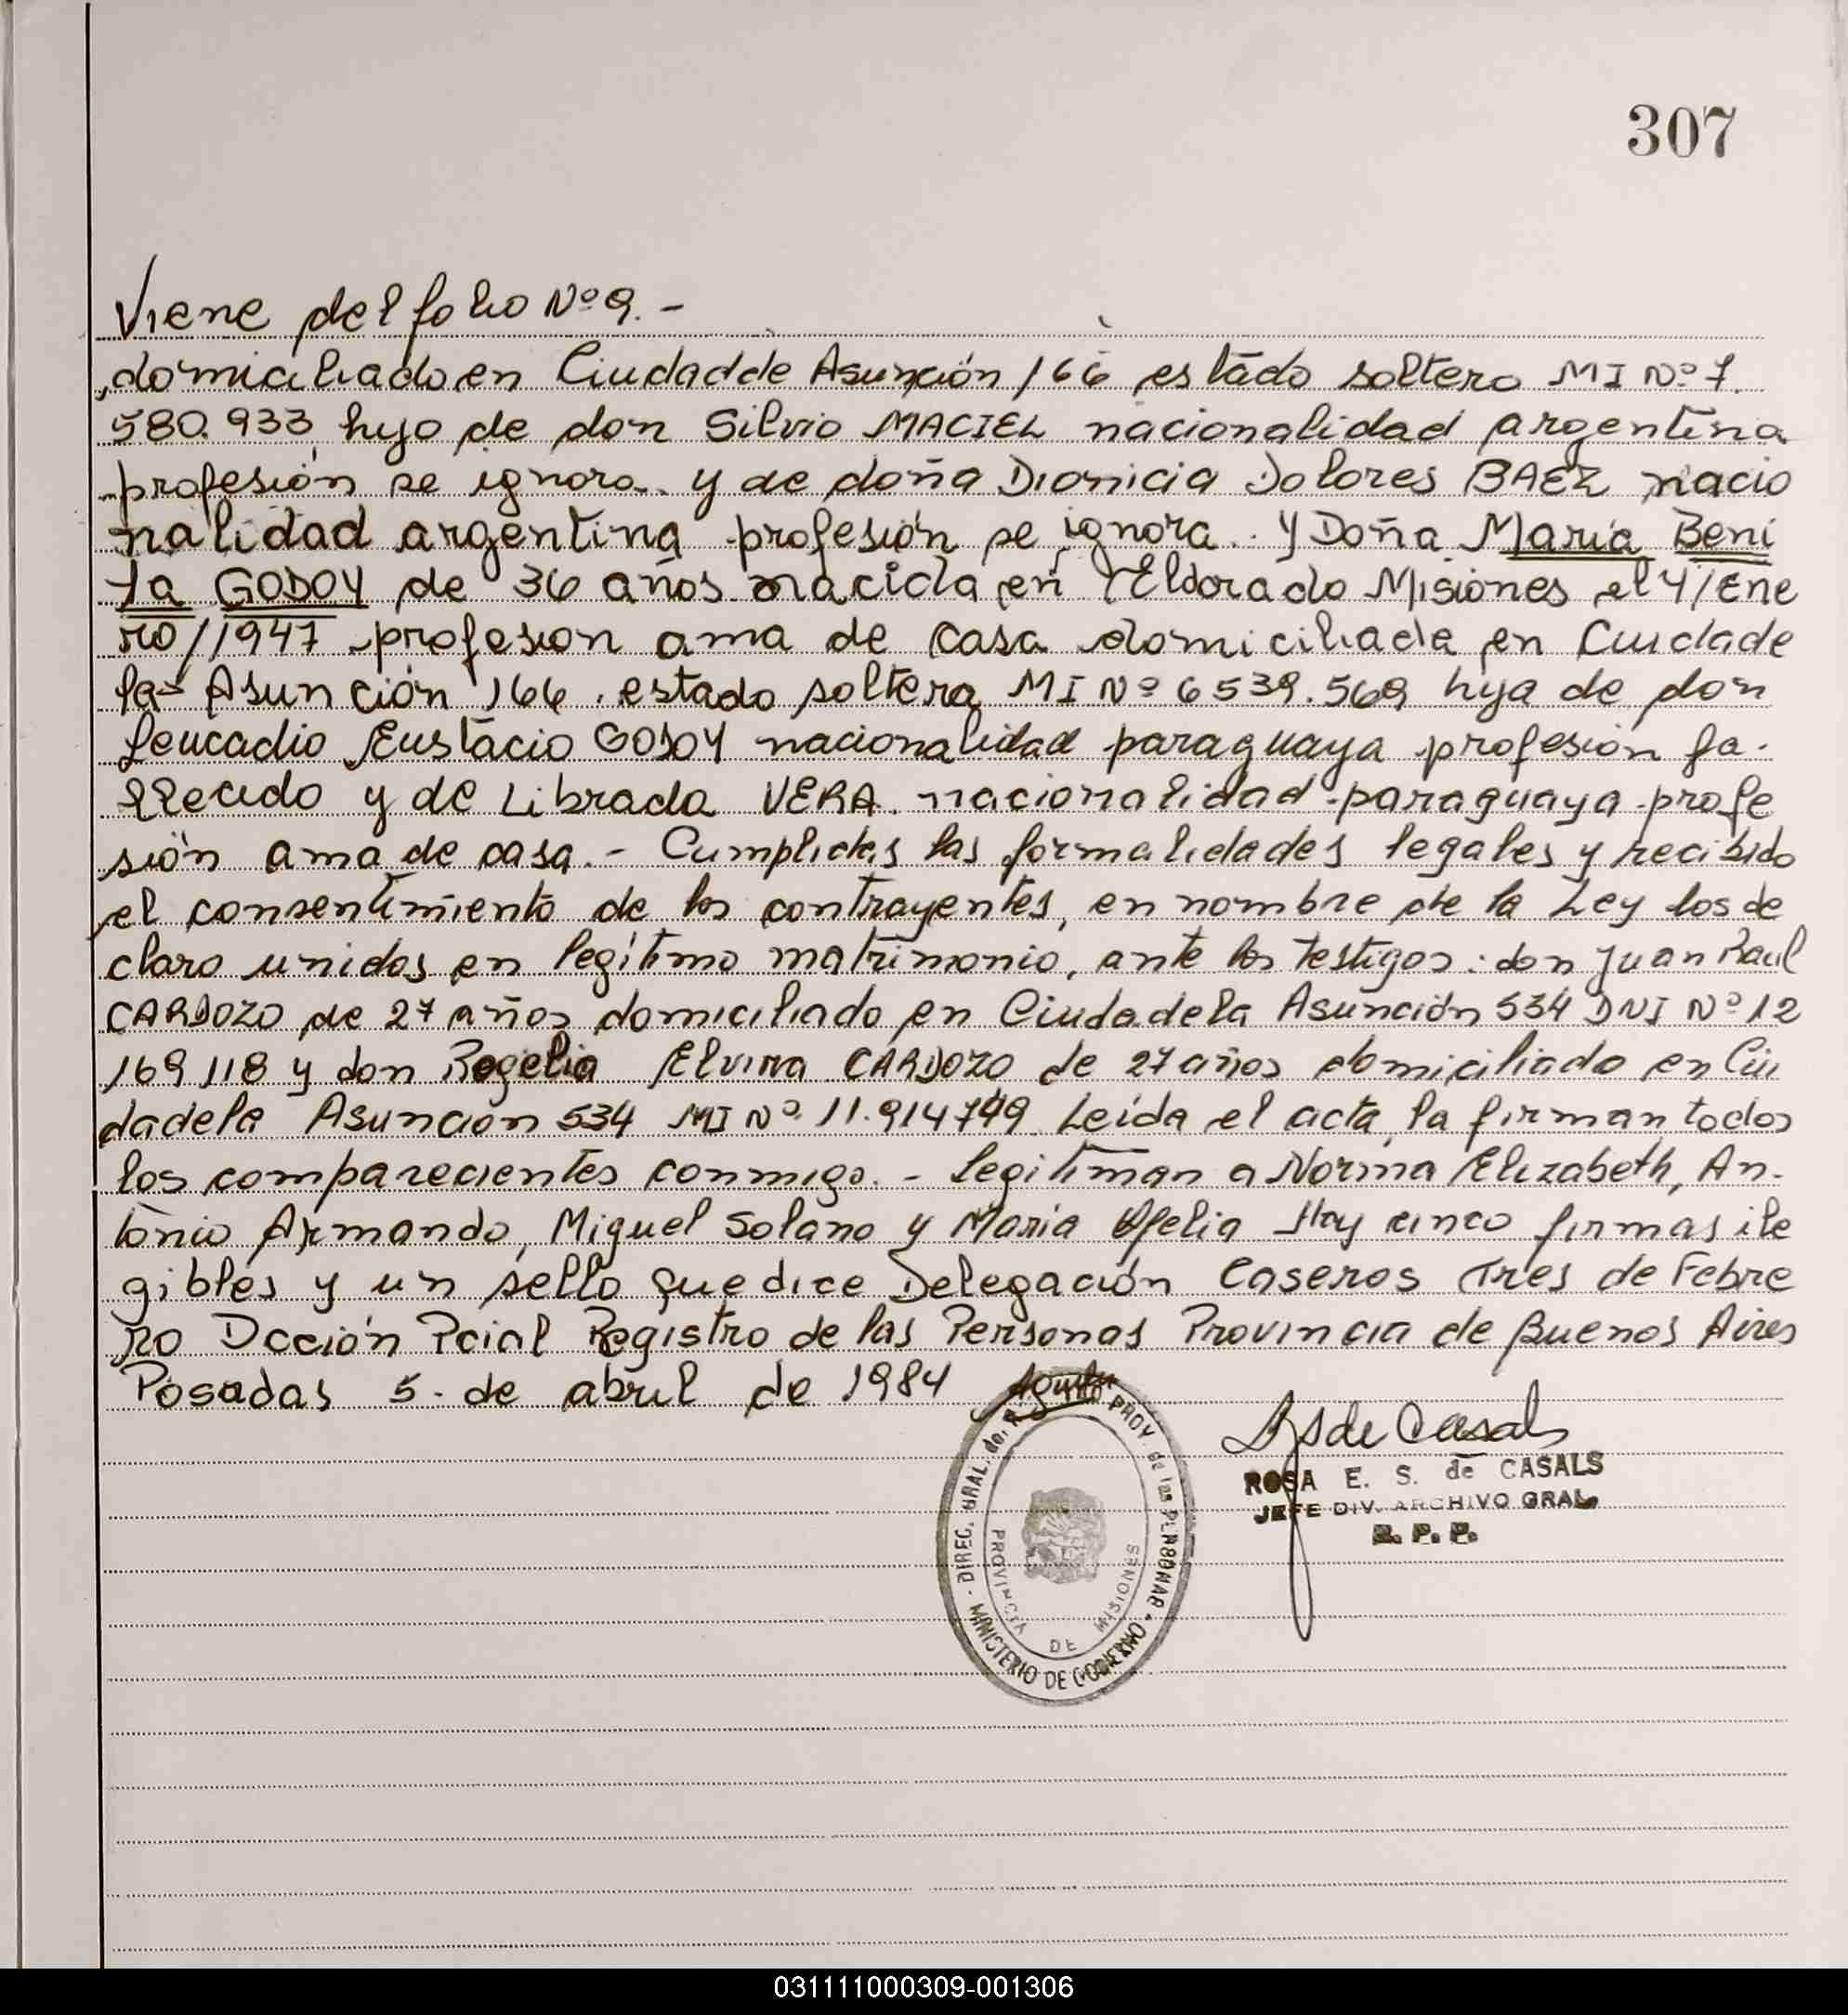 307
Viene del folio Nº 9.-
domiciliado en Ciudadde Asunción 166 estado soltero MI Nº 7.
580.933, hijo de don Silvio MACIEL nacionalidad argentina
profesión se ignora. y de doña Dionicia Dolores BAEZ nacio
nalidad argentina profesión se ignora. Y Doña María Beni
ta GODOY de 36 años nacida en Eldorado Misiones el 4/Ene
ro/1947 profesion ama de casa domiciliada en Ciudade
la Asunción 166. estado soltera MI Nº 6539.569 hija de don
Leucadio Eustacio GODOY nacionalidad paraguaya profesión fa-
llecido y de Librada VERA. nacionalidad paraguaya profe
sión ama de casa.- Cumplidas las formalidades legales y recibido
el consentimiento de los contrayentes, en nombre de la Ley los de
claro unidos en legítimo matrimonio, ante los testigos: don Juan Raul
CARDOZO de 27 años domiciliado en Ciudadela Asunción 534 DNI Nº 12
169 118 y don Rogelia Elvira CARDOZO de 27 años domiciliado en Ciu
dadela Asuncion 534 MI Nº 11.914799 Leída el acta, la firman todos
los comparecientes conmigo.- Legitiman a Norma Elizabeth, An-
tonio Armando, Miguel Solano y Maria Ofelia Hay cinco firmas ile
gibles y un sello que dice Delegación Caseros Tres de Febre
ro Dcción Pcial Registro de las Personas Provincia de Buenos Aires
Posadas 5. de abril de 1984
DIREC. GRAL. del R. PROV. de las PERSONAS
PROVINCIA DE MISIONES
MINISTERIO DE GOBIERNO
RS de Casals
ROSA E. S. de CASALS
JEFE DIV. ARCHIVO GRAL.
R. P. P.
031111000309-001306